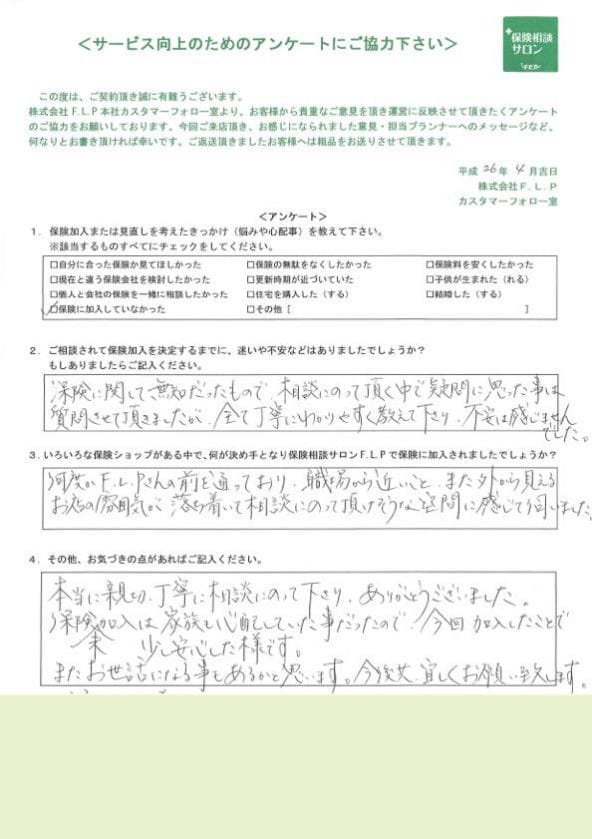 ＜サービス向上のためのアンケートにご協力下さい＞
保険相談
サロン
F.L.P
この度は、ご契約頂き誠に有難うございます。
株式会社F.L.P本社カスタマーフォロー室より、お客様から貴重なご意見を頂き運営に反映させて頂きたくアンケート
のご協力をお願いしております。今回ご来店頂き、お感じになられました意見・担当プランナーへのメッセージなど、
何なりとお書き頂ければ幸いです。ご返送頂きましたお客様へは粗品をお送りさせて頂きます。
平成 26年 4月吉日
株式会社F.L.P
カスタマーフォロー室
＜アンケート＞
1．保険加入または見直しを考えたきっかけ（悩みや心配事）を教えて下さい。
※該当するものすべてにチェックをしてください。
□自分に合った保険か見てほしかった □保険の無駄をなくしたかった □保険料を安くしたかった
□現在と違う保険会社を検討したかった □更新時期が近づいていた □子供が生まれた（れる）
□個人と会社の保険を一緒に相談したかった □住宅を購入した（する） □結婚した（する）
☑保険に加入していなかった □その他［ ］
2．ご相談されて保険加入を決定するまでに、迷いや不安などはありましたでしょうか？
もしありましたらご記入ください。
保険に関して無知だったもので、相談にのって頂く中で疑問に思った事は
質問させて頂きましたが、全て丁寧にわかりやすく教えて下り、不安は感じません
でした。
3．いろいろな保険ショップがある中で、何が決め手となり保険相談サロンF.L.Pで保険に加入されましたでしょうか？
何度かF.L.Pさんの前を通っており、職場から近いこと、また外から見える
お店の雰囲気が落ち着いて相談にのって頂けそうな空間に感じて伺いました。
4．その他、お気づきの点があればご記入ください。
本当に親切、丁寧に相談にのって下り、ありがとうございました。
保険加入は家族も心配していた事だったので、今回加入したことで
少し安心した様です。
またお世話になる事もあるかと思います。今後共、宜しくお願い致します。